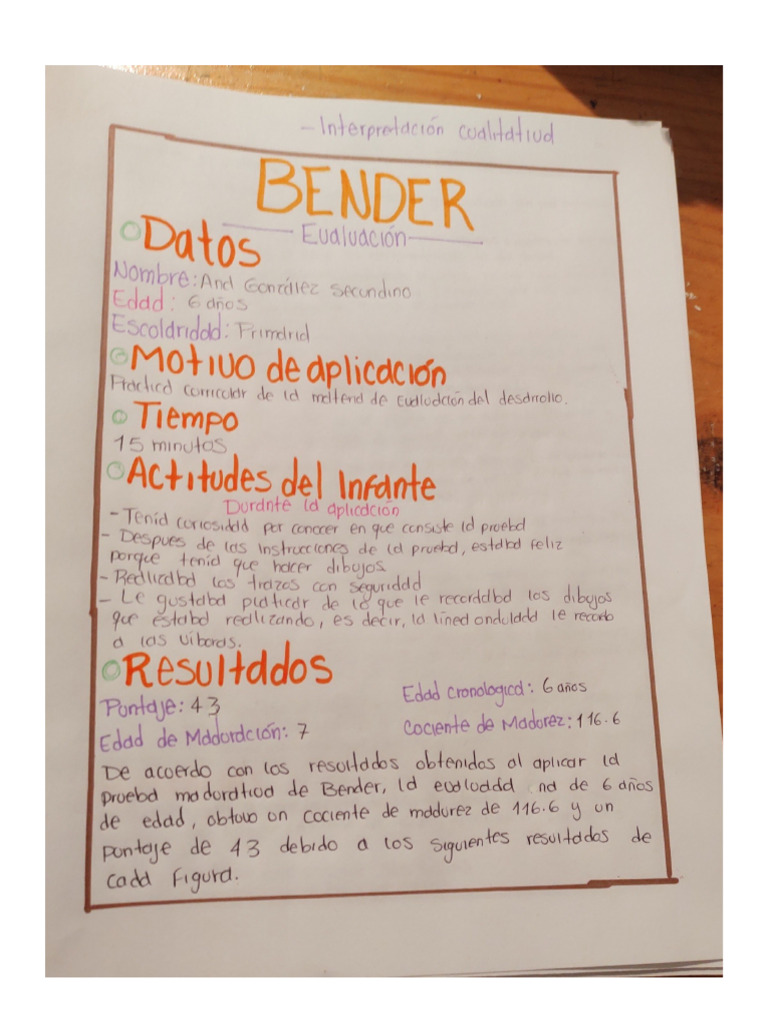 - Interpretación cualitativa
BENDER
Evaluación
Datos
Nombre: Ana González Secundino
Edad: 6 años
Escolaridad: Primaria
Motivo de aplicación
Práctica curricular de la materia de evaluación del desarrollo.
Tiempo
15 minutos
Actitudes del Infante
Durante la aplicación
- Tenía curiosidad por conocer en que consiste la prueba
- Despues de las instrucciones de la prueba, estaba feliz
porque tenía que hacer dibujos.
- Realizaba los trazos con seguridad
- Le gustaba platicar de lo que le recordaba los dibujos
que estaba realizando, es decir, la línea ondulada le recordo
a las víboras.
Resultados
Puntaje: 43
Edad Cronologica: 6 años
Edad de Maduración: 7
Cociente de Madurez: 116.6
De acuerdo con los resultados obtenidos al aplicar la
prueba madurativa de Bender, la evaluada Ana de 6 años
de edad, obtuvo un cociente de madurez de 116.6 y un
puntaje de 43 debido a los siguientes resultados de
cada figura.